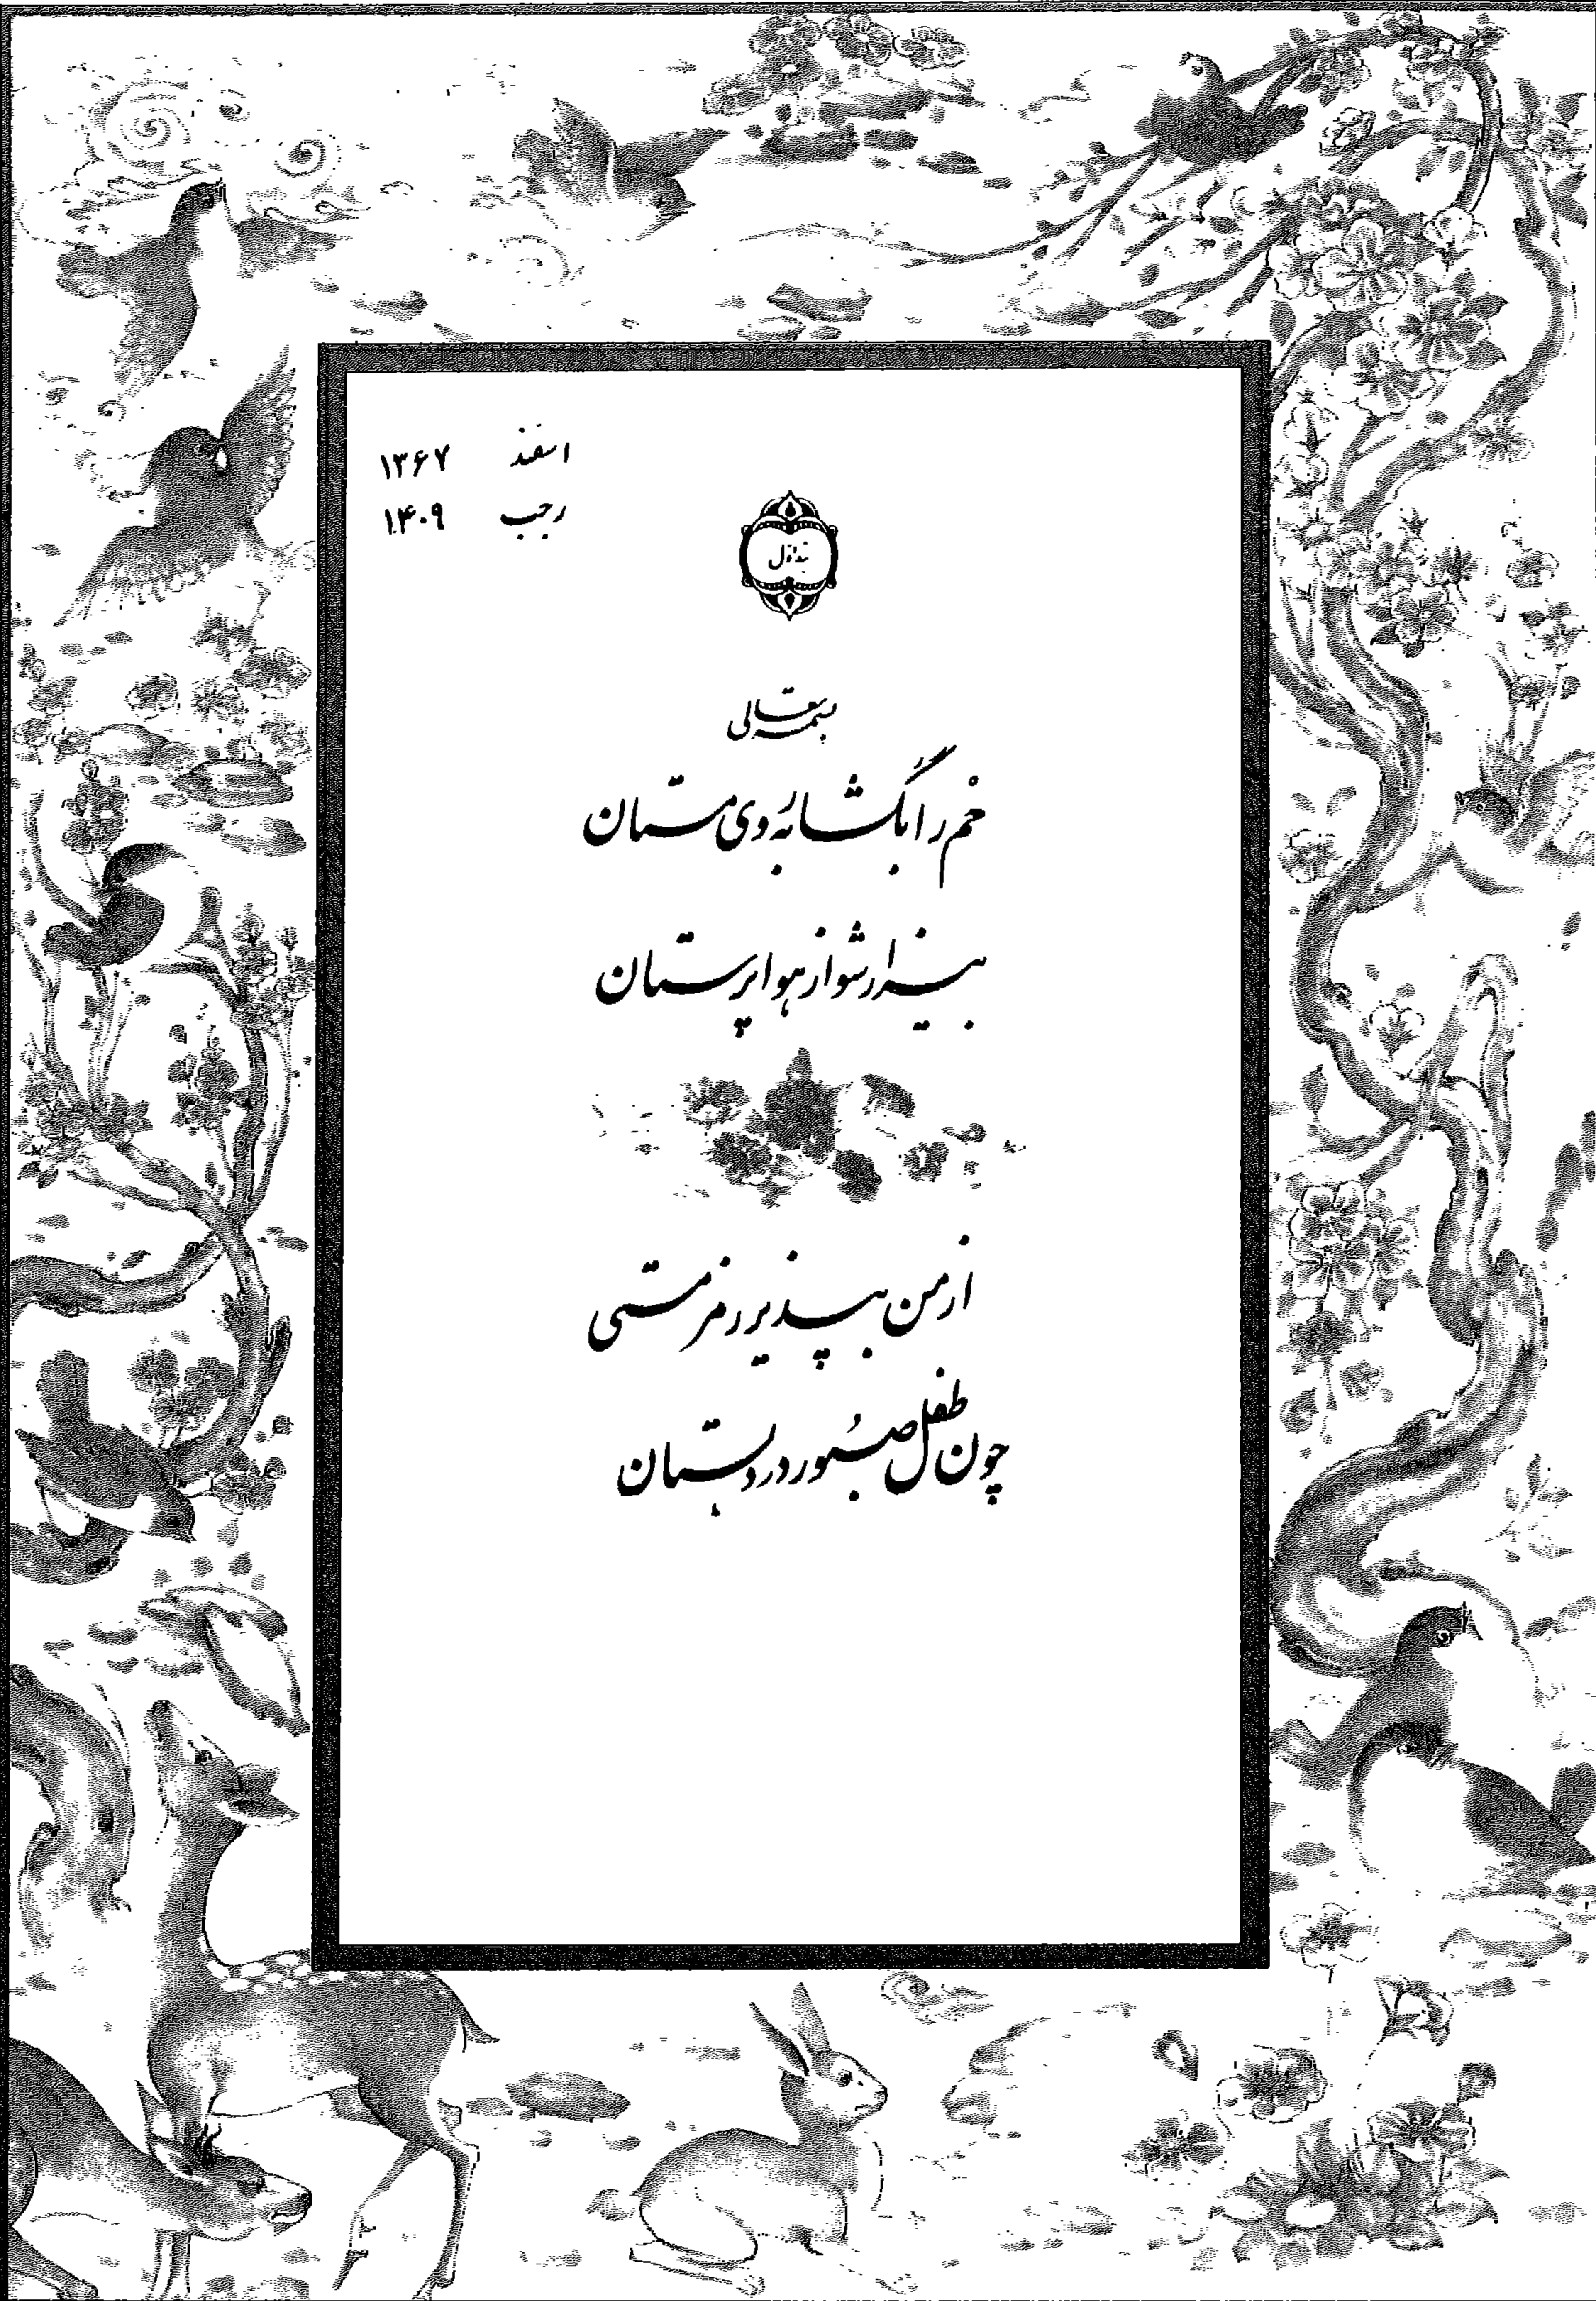 اسفند ۱۳۶۷
رجب ۱۴۰۹
بند اول
بسمه تعالی
خم را بگشا به روی مستان
بیزار شو از هوا پرستان
از من بپذیر رمز مستی
چون طفل صبور در دبستان